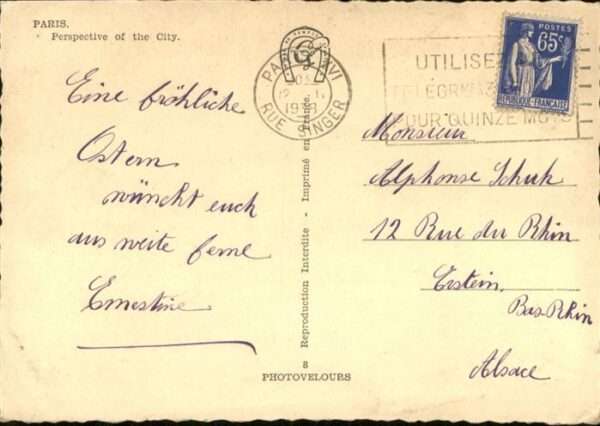 PARIS.
Perspective of the City.
Eine fröhliche
Ostern
wünscht euch
aus weite ferne
Ernestine
PARIS XVI
1938
RUE SINGER
UTILISEZ
TELEGRAMMES
POUR QUINZE MOTS
POSTES
65c
REPUBLIQUE FRANÇAISE
Monsieur
Alphonse Schuh
12 Rue du Rhin
Erstein
Bas Rhin
Alsace
8 Reproduction Interdite - Imprimé en France.
PHOTOVELOURS